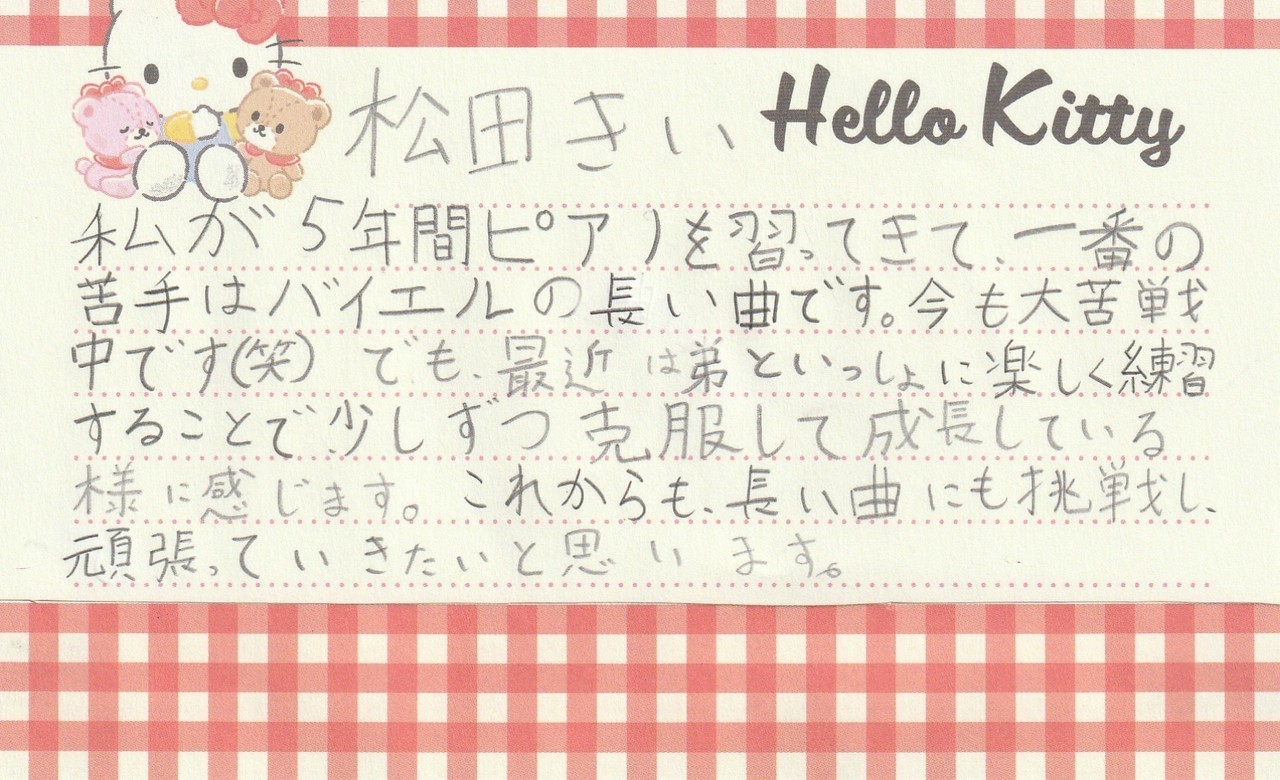 松田きい Hello Kitty
私が5年間ピアノを習ってきて、一番の
苦手はバイエルの長い曲です。今も大苦戦
中です(笑) でも、最近は弟といっしょに楽しく練習
することで少しずつ克服して成長している
様に感じます。これからも、長い曲にも挑戦し、
頑張っていきたいと思います。